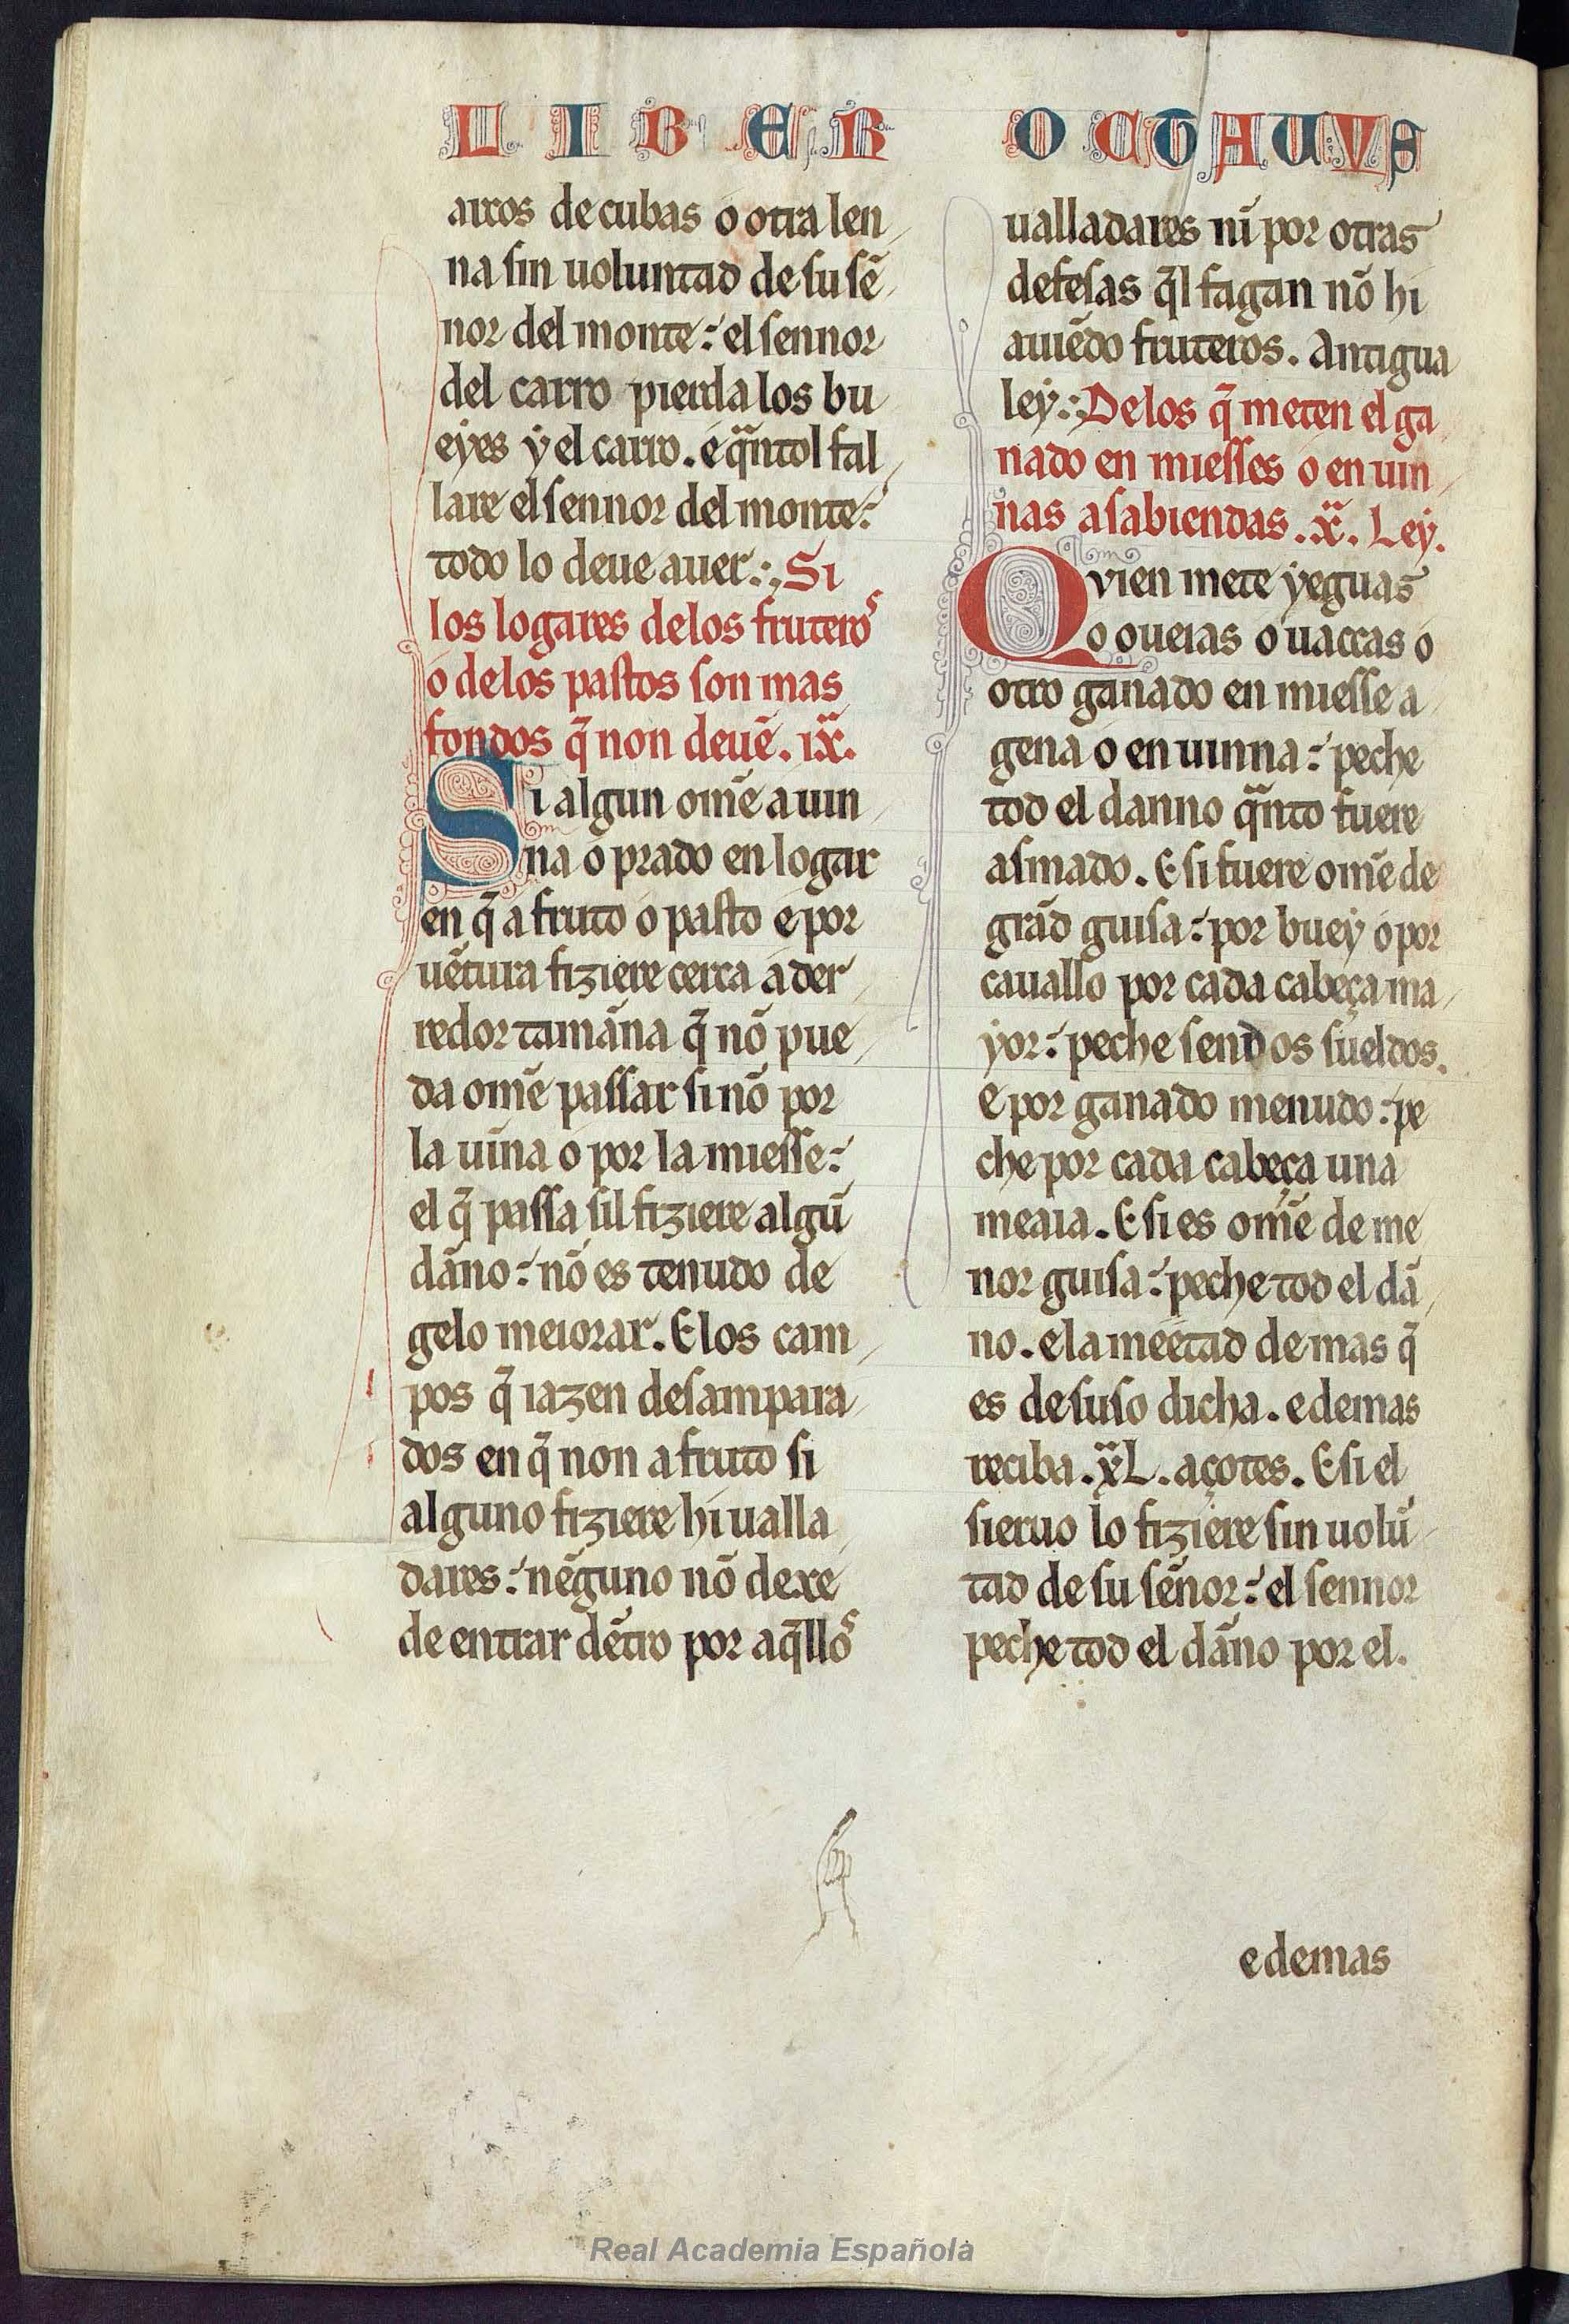 LIBER OCTAUVS
arcos de cubas o otra len
na sin uoluntad de su sẽ
nor del monte: el sennor
del carro pierda los bu
eyes y el carro. e q̃ntol fal
lare el sennor del monte:
todo lo deue auer: Si
los logares delos fruteros
o delos pastos son mas
fondos q̃ non deuẽ. ix.
Si algun om̃e a uin
na o prado en logar
en q̃ a fruto o pasto e por
uẽtura fiziere cerca a der
redor tamãna q̃ nõ pue
da om̃e passar si nõ por
la uĩna o por la miesse:
el q̃ passa sil fiziere algũ
dãno: nõ es tenudo de
gelo meiorar. E los cam
pos q̃ iazen desampara
dos en q̃ non a fruto si
alguno fiziere hi ualla
dares: nẽguno nõ dexe
de entrar dẽtro por aq̃llos
ualladares nĩ por otras
defesas q̃l fagan nõ hi
auiẽdo fruteros. Antigua
ley: Delos q̃ meten el ga
nado en miesses o en uin
nas a sabiendas. x. Ley.
Qvien mete yeguas
o oueias o uaccas o
otro ganado en miesse a
gena o en uinna: peche
tod el danno q̃nto fuere
asmado. E si fuere om̃e de
grãd guisa: por buey o por
cauallo por cada cabeça ma
yor: peche sendos sueldos.
e por ganado menudo: pe
che por cada cabeça una
meaia. E si es om̃e de me
nor guisa: peche tod el dã
no. e la meetad demas q̃
es de suso dicha. e demas
reciba. xL. açotes. E si el
sieruo lo fiziere sin uolũ
tad de su sẽnor: el sennor
peche tod el dãno por el.
e demas
Real Academia Española